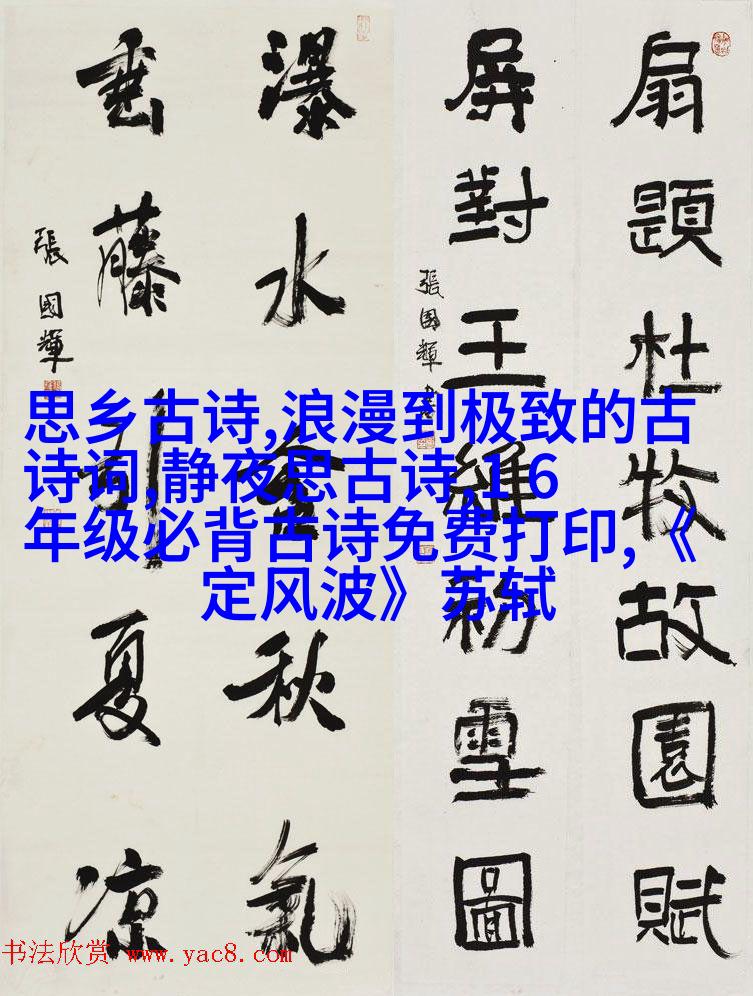 扇題杜牧故園賦
屏對王維初雪圖
張國輝書
瀑水含秋氣
垂藤引夏凉
張國輝
思乡古诗,浪漫到极致的古
诗词,静夜思古诗,1 6
年级必背古诗免费打印,《
定风波》苏轼
书法欣赏 www.yac8.com